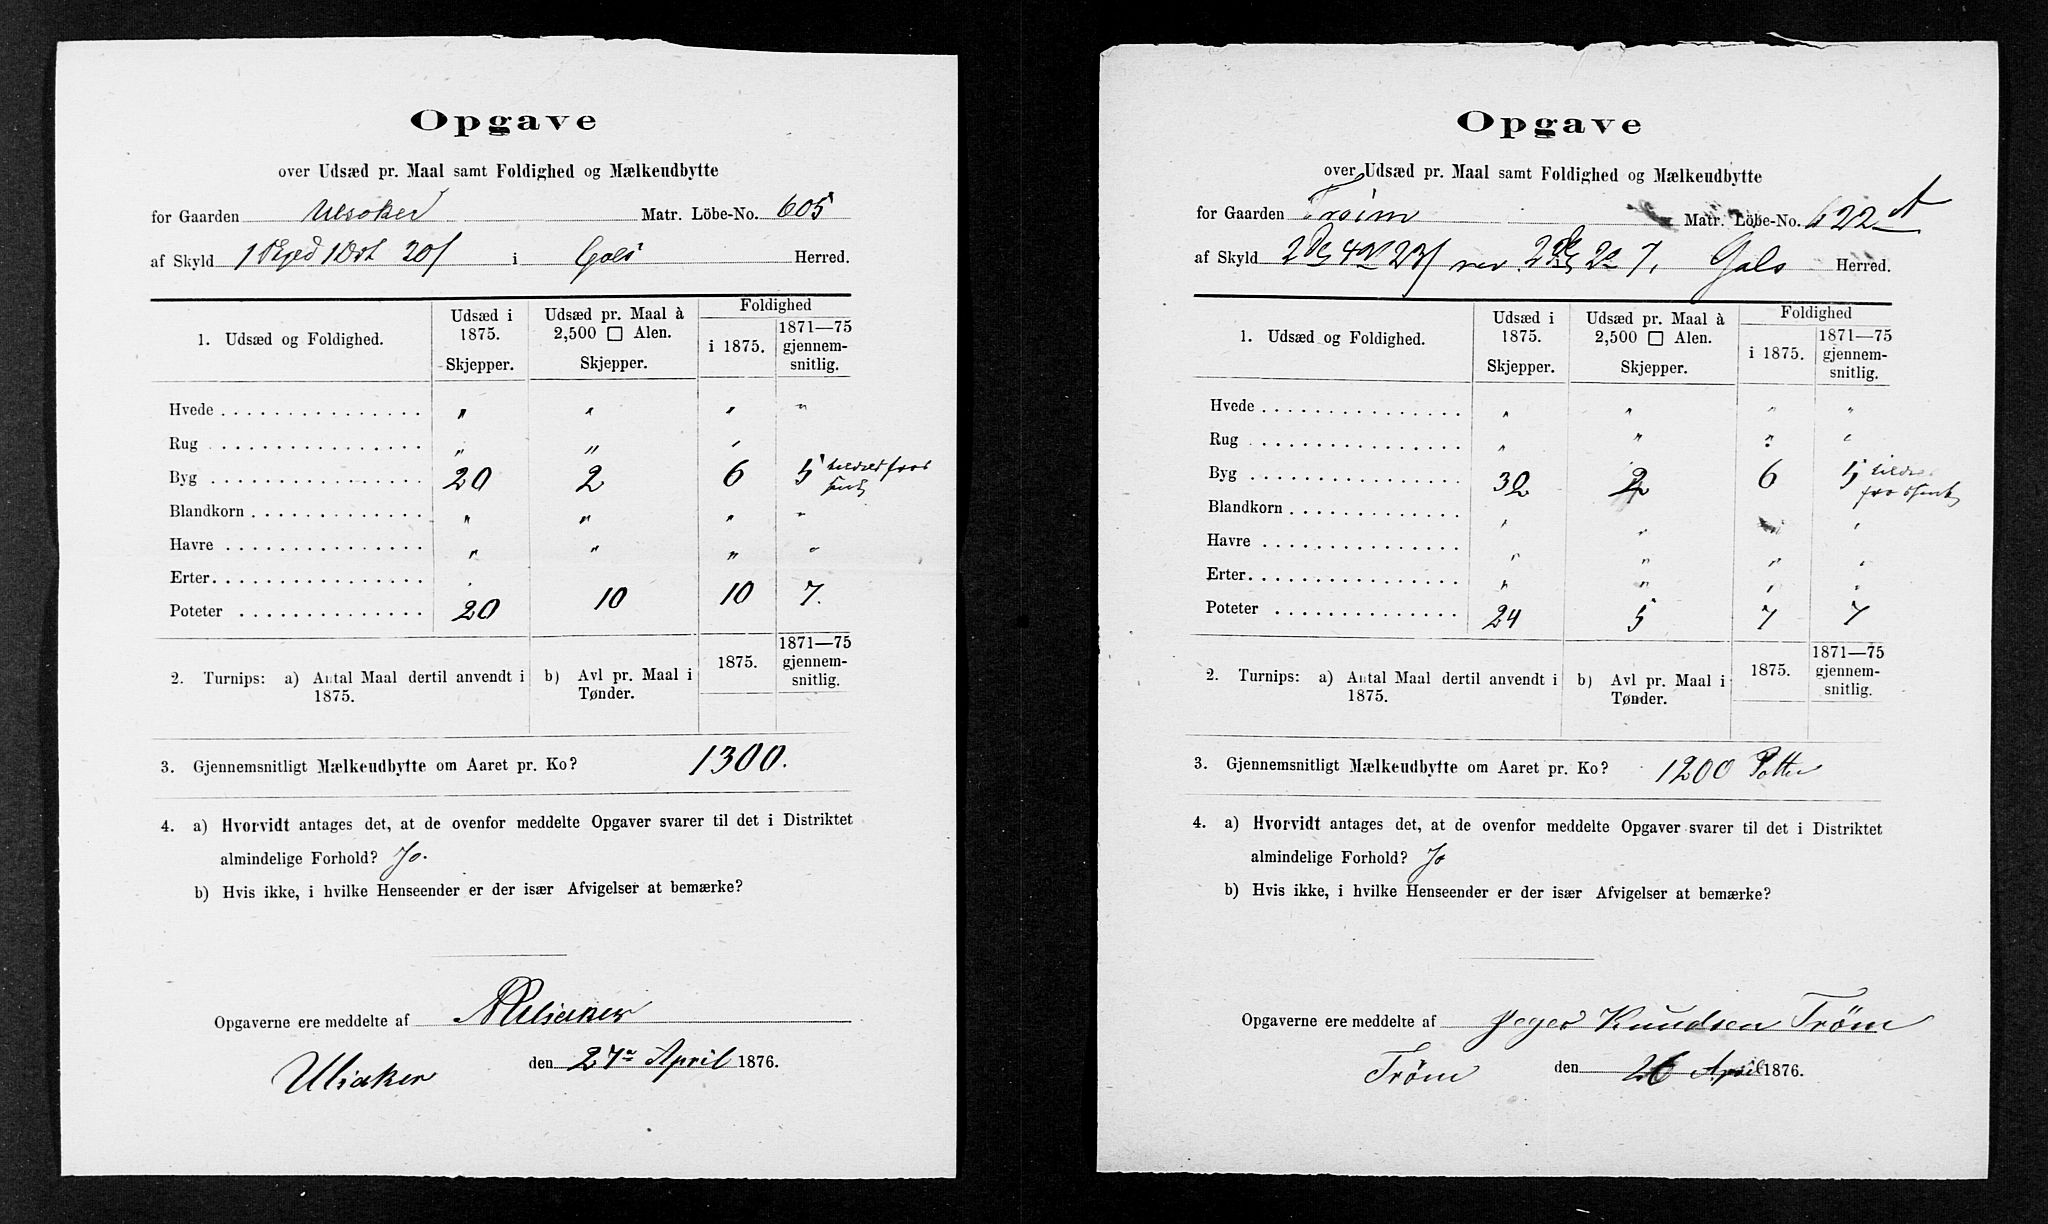 Opgave
over Udsæd pr. Maal samt Foldighed og Mælkeudbytte
for Gaarden Ulsaker Matr. Löbe-No. 605
af Skyld 1 Ort 20 i Gols Herred.
1. Udsæd og Foldighed.
Udsæd i 1875. Skjepper.
Udsæd pr. Maal à 2,500 □ Alen. Skjepper.
Foldighed
i 1875.
1871—75 gjennemsnitlig.
Hvede " " " "
Rug " " " "
Byg 20 2 6 5
Blandkorn " " " "
Havre " " " "
Erter
Poteter 20 10 10 7.
2. Turnips: a) Antal Maal dertil anvendt i 1875.
b) Avl pr. Maal i Tønder.
1875.
1871—75 gjennemsnitlig.
3. Gjennemsnitligt Mælkeudbytte om Aaret pr. Ko? 1300.
4. a) Hvorvidt antages det, at de ovenfor meddelte Opgaver svarer til det i Distriktet
almindelige Forhold? Jo.
b) Hvis ikke, i hvilke Henseender er der især Afvigelser at bemærke?
Opgaverne ere meddelte af Ulsaker
Ulsaker den 27de April 1876.
Opgave
over Udsæd pr. Maal samt Foldighed og Mælkeudbytte
for Gaarden Trøim Matr. Löbe-No. 622 A
af Skyld 2 4 23 rev. 2 2 7. Gols Herred.
1. Udsæd og Foldighed.
Udsæd i 1875. Skjepper.
Udsæd pr. Maal à 2,500 □ Alen. Skjepper.
Foldighed
i 1875.
1871—75 gjennemsnitlig.
Hvede " " " "
Rug " " " "
Byg 32 2 6 5
Blandkorn " " "
Havre " " " "
Erter " " " "
Poteter 24 5 7 7
2. Turnips: a) Antal Maal dertil anvendt i 1875.
b) Avl pr. Maal i Tønder.
1875.
1871—75 gjennemsnitlig.
3. Gjennemsnitligt Mælkeudbytte om Aaret pr. Ko? 1200 Potter
4. a) Hvorvidt antages det, at de ovenfor meddelte Opgaver svarer til det i Distriktet
almindelige Forhold? Jo
b) Hvis ikke, i hvilke Henseender er der især Afvigelser at bemærke?
Opgaverne ere meddelte af Knudsen Trøm
Trøm den 26 April 1876.